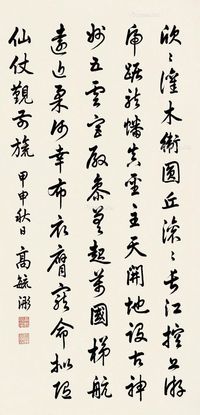 欣〻灌木衛圓丘滾〻長江控上游
虎踞龍蟠真聖主天開地設古神
州五雲宮殿參差起萬國梯航
遠近柔何幸布衣膺寵命擬陪
仙仗覲前旒 甲申秋日 高毓浵